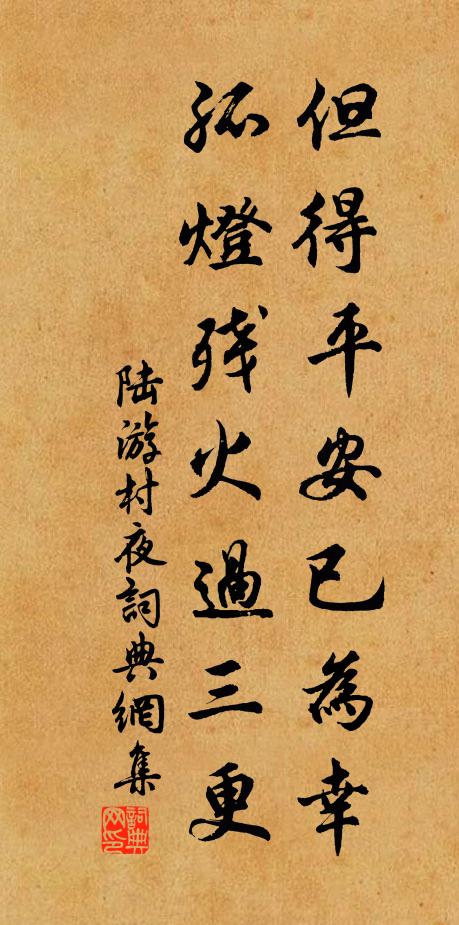 但得平安已為幸
孤燈残火過三更
陆游村夜詞典網集
詞典网印